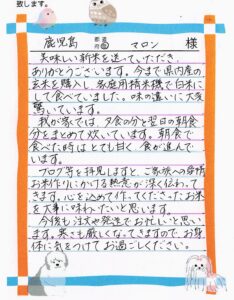 致します。
鹿児島 都道府県 マロン 様
美味しい新米を送っていただき、
ありがとうございます。今まで県内産の
玄米を購入し、家庭用精米機で白米に
して食べていました。味の違いに大変
驚いています。
我が家では、夕食の分と翌日の朝食
分をまとめて炊いています。朝食で
食べた時はとても甘く食が進んで
います。
ブログ等を拝見しますと、ご家族への愛情
お米作りにかける熱意が深く伝わって
きます。心を込めて作ってくださったお米
を大事に味わいたいと思います。
今後も注文や発送でお忙しいと思い
ます。寒さも厳しくなってきますので、お身
体に気をつけてお過ごしください。